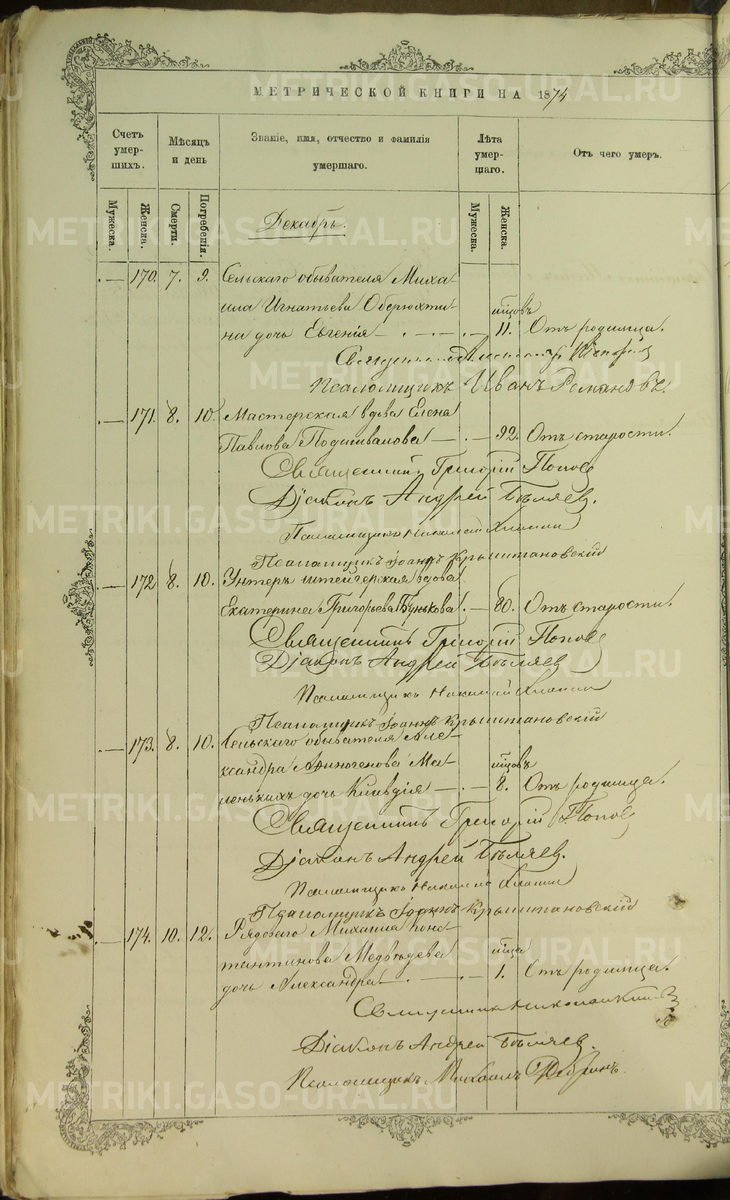 МЕТРИЧЕСКОЙ КНИГИ НА 1874
Счетъ умер-шихъ.
Мѣсяцъ и день
Званіе, имя, отчество и фамилія умершаго.
Лѣта умер-шаго.
Отъ чего умеръ.
Мужеска.
Женска.
Смерти.
Погребенія.
Мужеска.
Женска.
Декабрь.
170. 7. 9. Сельскаго обывателя Миха-
ила Игнатьева Оберюхти- мѣсяцовъ
на дочь Евгенія 11. Отъ родимца.
Псаломщикъ Иванъ Романовъ.
171. 8. 10. Мастерская вдова Елена
Павлова 92. Отъ старости.
Священникъ Григорій Поповъ
Діаконъ Андрей Бѣляев.
Псаломщикъ Николай
Псаломщикъ Іоаннъ Крыштановскій
172. 8. 10. Унтеръ штейгерская вдова
Екатерина Григорьева Бунькова. 80. Отъ старости.
Священникъ Григорій Поповъ
Діаконъ Андрей Бѣляев
Псаломщикъ Николай
Псаломщикъ Іоаннъ Крыштановскій
173. 8. 10. Сельскаго обывателя Але-
ксандра Афиногенова Ма- мѣсяцовъ
ленькихъ дочь Клавдія 8. Отъ родимца.
Священникъ Григорій Поповъ
Діаконъ Андрей Бѣляев.
Псаломщикъ Николай
Псаломщикъ Іоаннъ Крыштановскій
174. 10. 12. Рядоваго Михаила Конс-
тантинова Медвѣдева мѣсяца
дочь Александра 1. Отъ родимца.
Священникъ
Діаконъ Андрей Бѣляев.
Псаломщикъ Михаилъ
METRIKI.GASO-URAL.RU